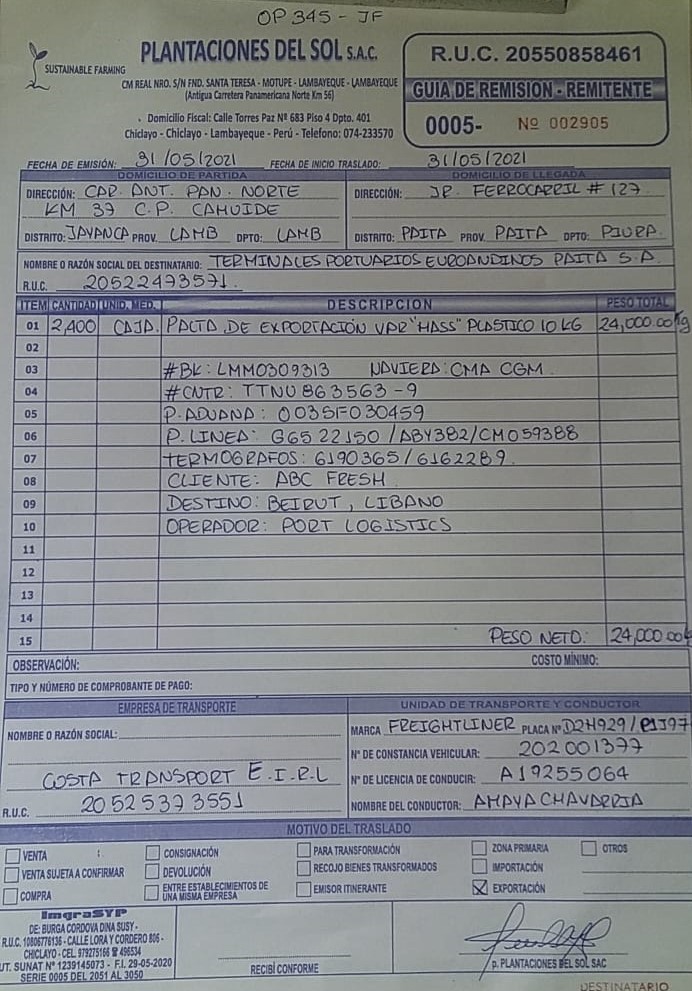 OP 345 - JF
SUSTAINABLE FARMING
PLANTACIONES DEL SOL S.A.C.
CM REAL NRO. S/N FND. SANTA TERESA - MOTUPE - LAMBAYEQUE - LAMBAYEQUE
(Antigua Carretera Panamericana Norte Km 56)
Domicilio Fiscal: Calle Torres Paz Nº 683 Piso 4 Dpto. 401
Chiclayo - Chiclayo - Lambayeque - Perú - Telefono: 074-233570
R.U.C. 20550858461
GUIA DE REMISION - REMITENTE
0005- Nº 002905
FECHA DE EMISIÓN: 31/05/2021 FECHA DE INICIO TRASLADO: 31/05/2021
DOMICILIO DE PARTIDA
DIRECCIÓN: CAR. ANT. PAN. NORTE
KM 37 C.P. CAHUIDE
DISTRITO: JAYANCA PROV. LAMB DPTO: LAMB
DOMICILIO DE LLEGADA
DIRECCIÓN: JR. FERROCARRIL # 127
DISTRITO: PAITA PROV. PAITA DPTO: PIURA
NOMBRE O RAZÓN SOCIAL DEL DESTINATARIO: TERMINALES PORTUARIOS EUROANDINOS PAITA S.A.
R.U.C. 20522473571.
ITEM CANTIDAD UNID. MED. DESCRIPCION PESO TOTAL
01 2,400 CAJA. PALTA DE EXPORTACIÓN VAR "HASS" PLASTICO 10 KG 24,000.00 Kg
02
03 #BK: LMM0309313 NAVIERA: CMA CGM
04 #CNTR: TTNU 863563-9
05 P. ADUANA: 0035F030459
06 P. LINEA: G6522150/ABY382/CM059388
07 TERMOGRAFOS: 6190365/6162289
08 CLIENTE: ABC FRESH
09 DESTINO: BEIRUT, LIBANO
10 OPERADOR: PORT LOGISTICS
11
12
13
14
15 PESO NETO: 24,000.00
OBSERVACIÓN: COSTO MÍNIMO:
TIPO Y NÚMERO DE COMPROBANTE DE PAGO:
EMPRESA DE TRANSPORTE
NOMBRE O RAZÓN SOCIAL:
COSTA TRANSPORT E.I.R.L
R.U.C. 20525373551
UNIDAD DE TRANSPORTE Y CONDUCTOR
MARCA FREIGHTLINER PLACA Nº D2H929/
Nº DE CONSTANCIA VEHICULAR: 202001377
Nº DE LICENCIA DE CONDUCIR: A19255064
NOMBRE DEL CONDUCTOR: AMAYA CHAVARRIA
MOTIVO DEL TRASLADO
VENTA
VENTA SUJETA A CONFIRMAR
COMPRA
CONSIGNACIÓN
DEVOLUCIÓN
ENTRE ESTABLECIMIENTOS DE
UNA MISMA EMPRESA
PARA TRANSFORMACIÓN
RECOJO BIENES TRANSFORMADOS
EMISOR ITINERANTE
ZONA PRIMARIA
IMPORTACIÓN
EXPORTACIÓN
OTROS
ImgraSYP
DE: BURGA CORDOVA DINA SUSY -
R.U.C. 10806776136 - CALLE LORA Y CORDERO 806 -
CHICLAYO - CEL. 979275166 496534
UT. SUNAT Nº 1239145073 - F.I. 29-05-2020
SERIE 0005 DEL 2051 AL 3050
RECIBÍ CONFORME
p. PLANTACIONES DEL SOL SAC
DESTINATARIO